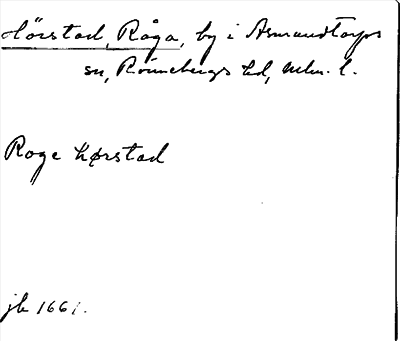 Hörstad, Råga, by i Asmundtorps
sn, Rönnebergs hd, Mlm. l.
Roge Hørstad
jb 1661.